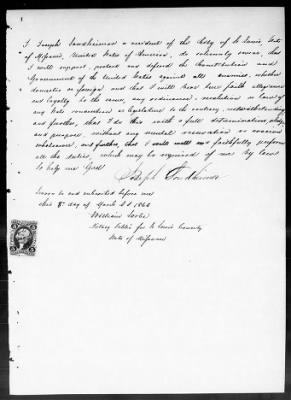 I, Joseph a resident of the City of St Louis, State
of Missouri, United States of America, do solemnly swear, that
I will support, protect and defend the Constitution and
Government of the United States against all enemies, whether
domestic or foreign and that I will bear true faith allegiance
and loyalty to the same, any ordinance, resolution or law of
any State convention or legislature to the contrary notwithstanding
and further, that I do this with a full determination, pledge
and purpose, without any mental reservation or evasion
whatsoever, and further, that I will well and faithfully perform
all the duties, which may be required of me by law
So help me God
Joseph
Sworn to and subscribed before me
this 8th day of March A D 186
William
Notary Public for St Louis County
State of Missouri